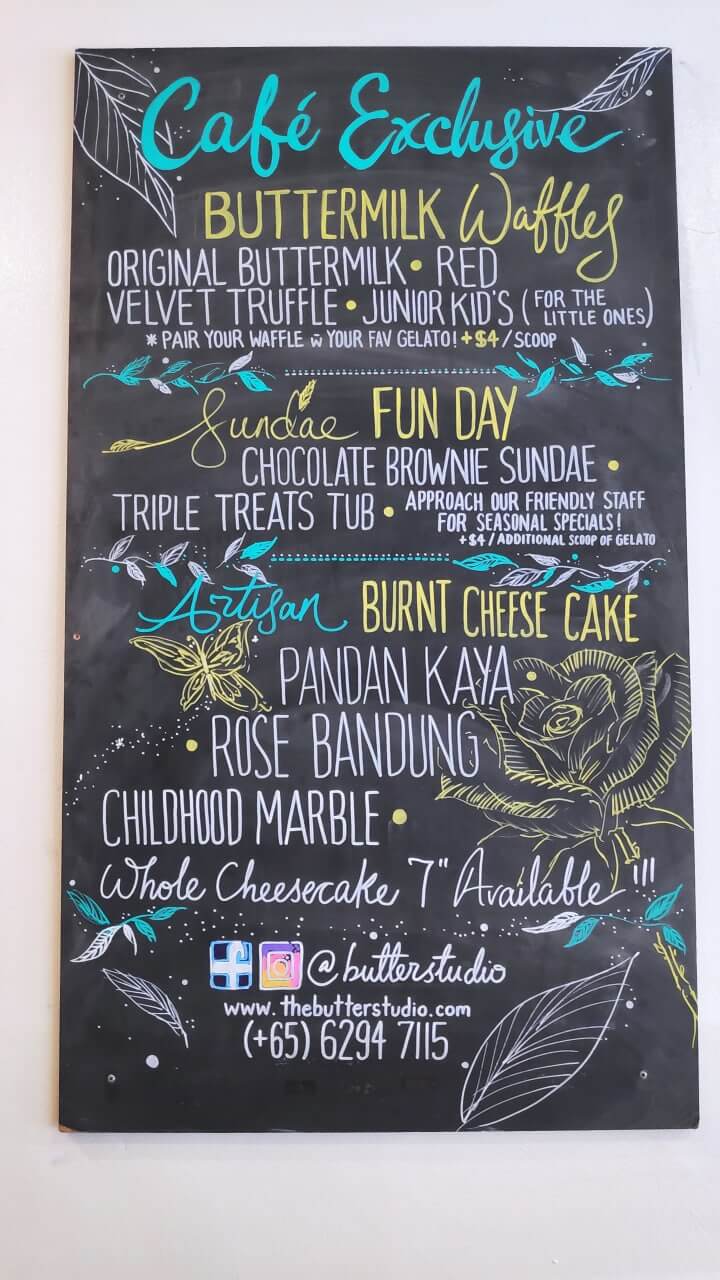 Café Exclusive
BUTTERMILK Waffles
ORIGINAL BUTTERMILK • RED
VELVET TRUFFLE • JUNIOR KID'S (FOR THE
LITTLE ONES)
* PAIR YOUR WAFFLE w̄ YOUR FAV GELATO! +$4/SCOOP
Sundae FUN DAY
CHOCOLATE BROWNIE SUNDAE •
TRIPLE TREATS TUB • APPROACH OUR FRIENDLY STAFF
FOR SEASONAL SPECIALS!
+$4/ADDITIONAL SCOOP OF GELATO
Artisan BURNT CHEESE CAKE
PANDAN KAYA •
• ROSE BANDUNG
CHILDHOOD MARBLE •
Whole Cheesecake 7" Available !!!
@butterstudio
www.thebutterstudio.com
(+65) 6294 7115